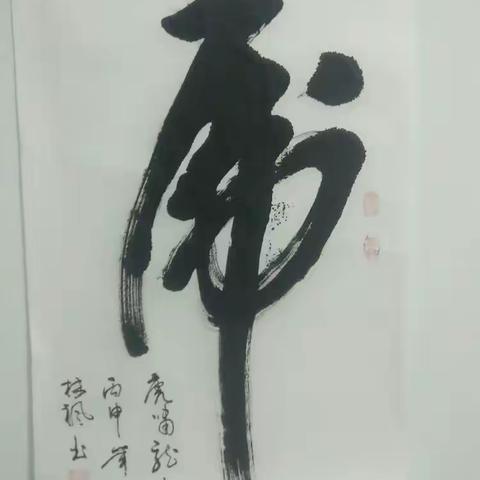 虎
虎啸龙
丙申年
枫书